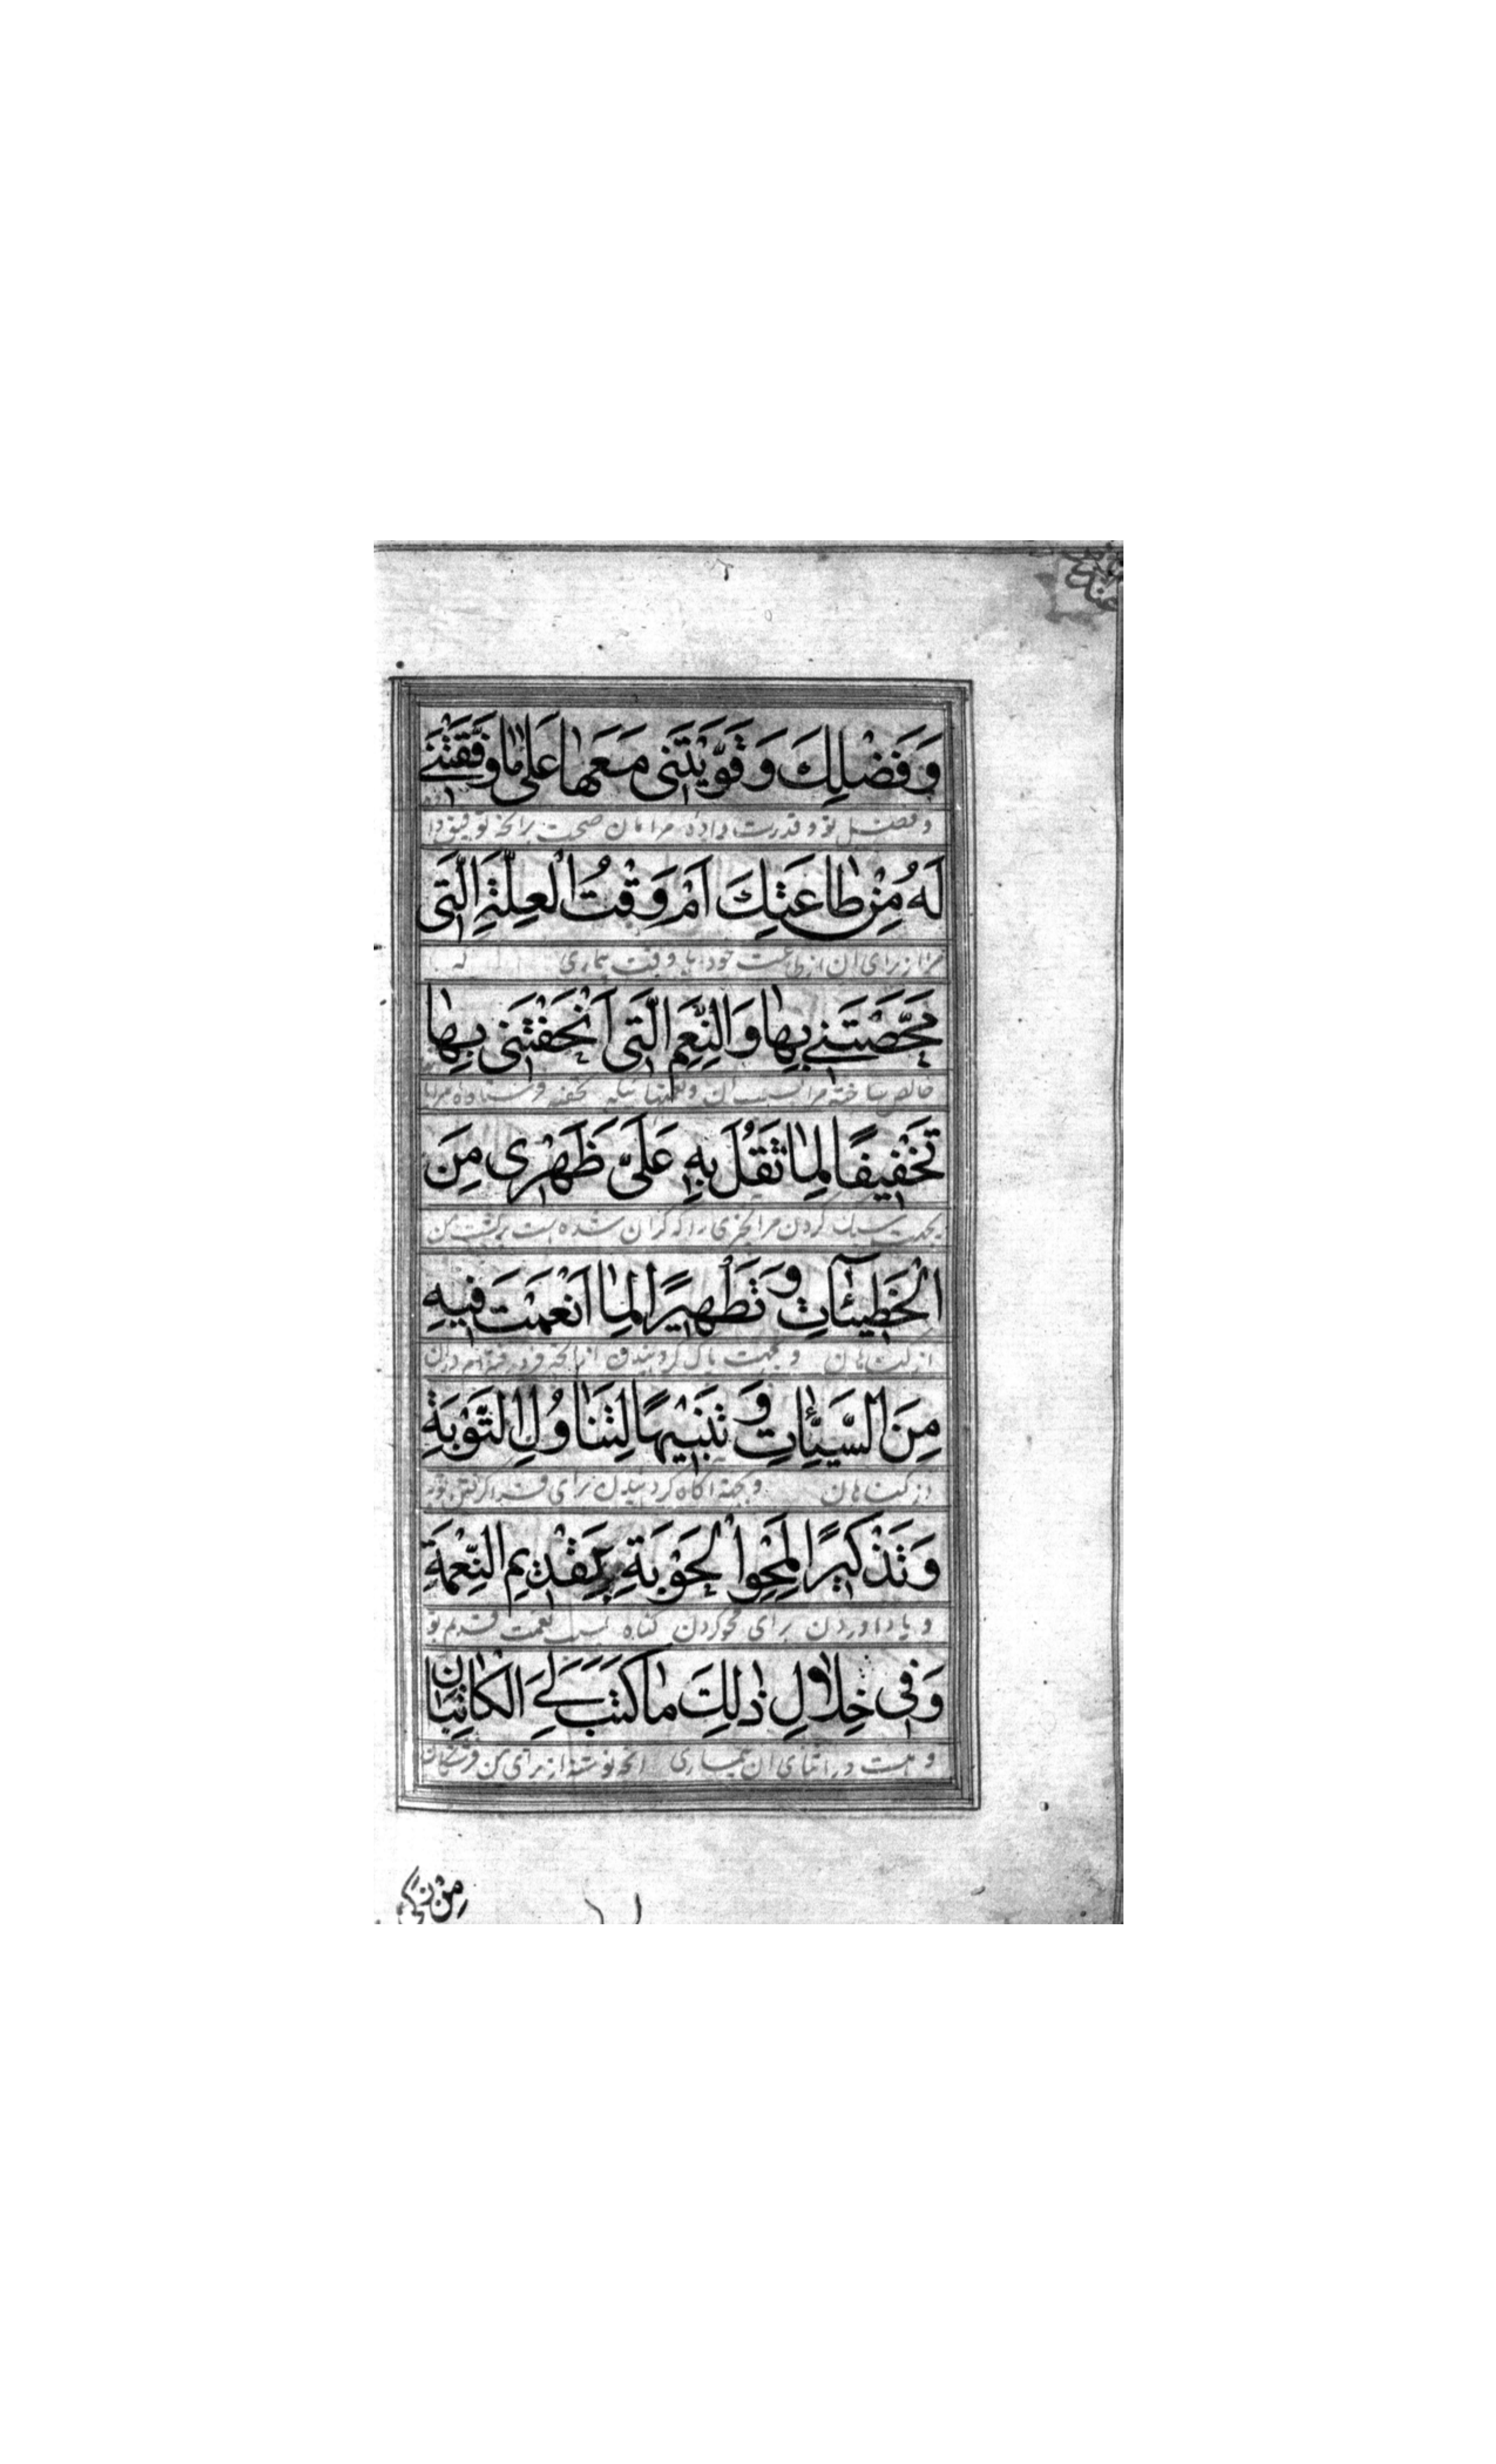 وَفَضْلِكَ وَقَوَّيْتَنى مَعَها عَلى ما وَفَّقْتَنے
و فضل تو و قدرت داده مرا بان صحت برانچه توفیق دا
لَهُ مِنْ طاعَتِكَ اَمْ وَقْتُ الْعِلَّةِ الَّتى
مرا از برای ان از طاعت خود یا وقت بیماری که
مَحَّصْتَنے بِها وَالنِّعَمِ الَّتى اَتْحَفْتَنى بِها
خالص ساخته مرا بسبب ان و نعمتهائیکه تحفه فرستاده مرا بها
تَخْفيفًا لِما ثَقُلَ بِهِ عَلَىَّ ظَهْرى مِنَ
بجهت سبک کردن مر انچیزی را که گران شده است بر پشت من
الْخَطيئاتِ وَتَطْهيرًا لِمَا انْغَمَسْتُ فيهِ
از گناهان و بجهت پاک گردانیدن از انچه فرو رفته ام دران
مِنَ السَّيِّئاتِ وَتَنْبيهًا لِتَناوُلِ التَّوْبَةِ
از گناهان و بجهة اگاه گردانیدن برای فرا گرفتن توبه
وَتَذْكيرًا لِمَحْوِ الْحَوْبَةِ بِقَديمِ النِّعْمَةِ
و یاد اوردن برای محو کردن گناه بسبب نعمت قدیم تو
وَفى خِلالِ ذٰلِكَ ما كَتَبَ لِىَ الْكاتِبانِ
و هست در اثنای ان بیماری انچه نوشته از برای من فرشتگان
مِنْ زَكِىِّ